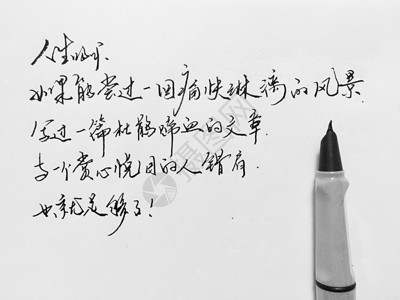 人生的
如果能尝过一回痛快淋漓的风景
写过一篇杜鹃啼血的文章
与一个赏心悦目的人错肩
也就足够了!
摄图网